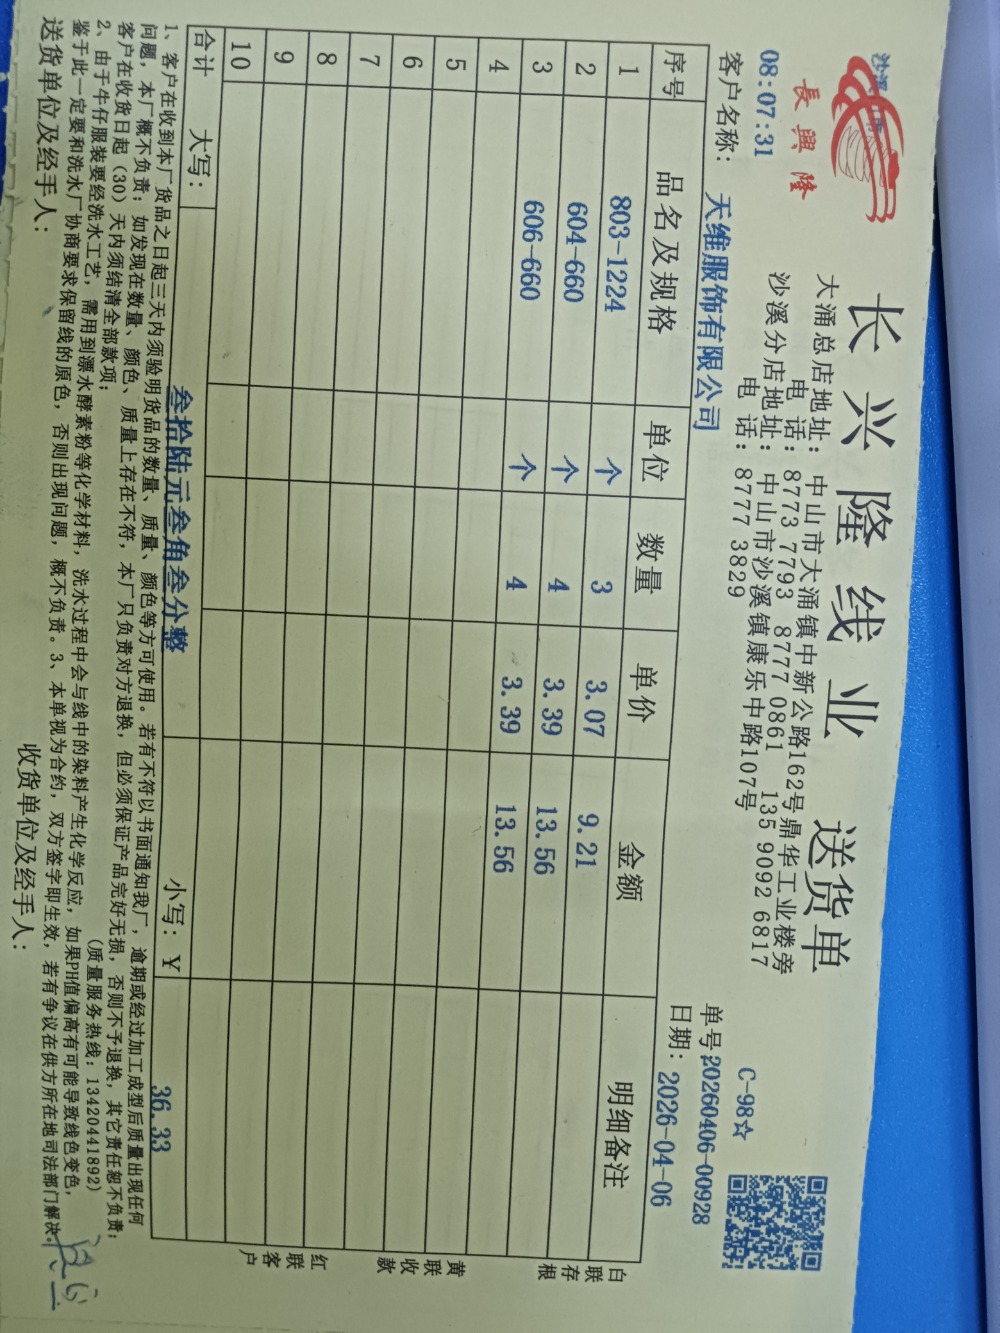 長興隆
长兴隆线业 送货单
大涌总店地址：中山市大涌镇中新公路162号鼎华工业楼旁
电 话：8773 7793 8777 0861 135 9092 6817
沙溪分店地址：中山市沙溪镇康乐中路107号
电 话：8777 3829
08:07:31
C-98☆
单号20260406-00928
客户名称：天维服饰有限公司 日期：2026-04-06
序号 品名及规格 单位 数量 单价 金额 明细备注
1 803-1224 个 3 3.07 9.21
2 604-660 个 4 3.39 13.56
3 606-660 个 4 3.39 13.56
4
5
6
7
8
9
10
合计 大写：叁拾陆元叁角叁分整 小写：￥ 36.33
白联存根
黄联收款
红联客户
1、客户在收到本厂货品之日起三天内须验明货品的数量、质量、颜色等方可使用。若有不符以书面通知我厂，逾期或经过加工成型后质量出现任何
问题，本厂概不负责；如发现在数量、颜色、质量上存在不符，本厂只负责对方退换，但必须保证产品完好无损，否则不予退换，其它责任恕不负责；
客户在收货日起（30）天内须结清全部款项； （质量服务热线：13420441892）
2、由于牛仔服装要经洗水工艺，需用到漂水酵素粉等化学材料，洗水过程中会与线中的染料产生化学反应，如果PH值偏高有可能导致线色变色，
鉴于此一定要和洗水厂协商要求保留线的原色，否则出现问题，概不负责。3、本单视为合约，双方签字即生效，若有争议在供方所在地司法部门解决。
送货单位及经手人： 收货单位及经手人：